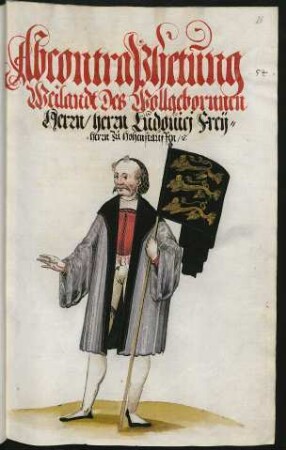 Abcontraphetung
Weilandt des Wollgebornnen
Herrn / herrn Ludouici Frey⸗
herrn zu Hohenstauffen / ꝛc
54